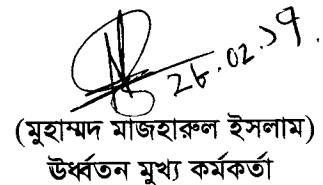 26.02.19
(মুহাম্মদ মাজহারুল ইসলাম)
ঊর্ধ্বতন মুখ্য কর্মকর্তা